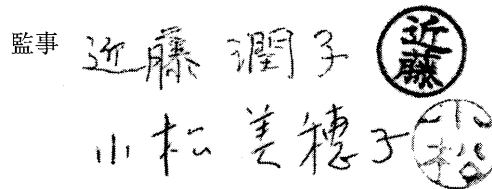 監事 近藤 潤子 近藤
小松 美穂子 小松